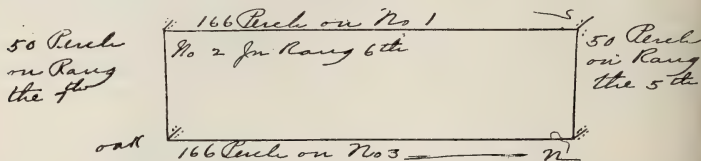 166 Perch on No 1
S
50 Perch
on Rang
the 7th
No 2 Jn Rang 6th
50 Perch
on Rang
the 5th
oak
166 Perch on No 3
N